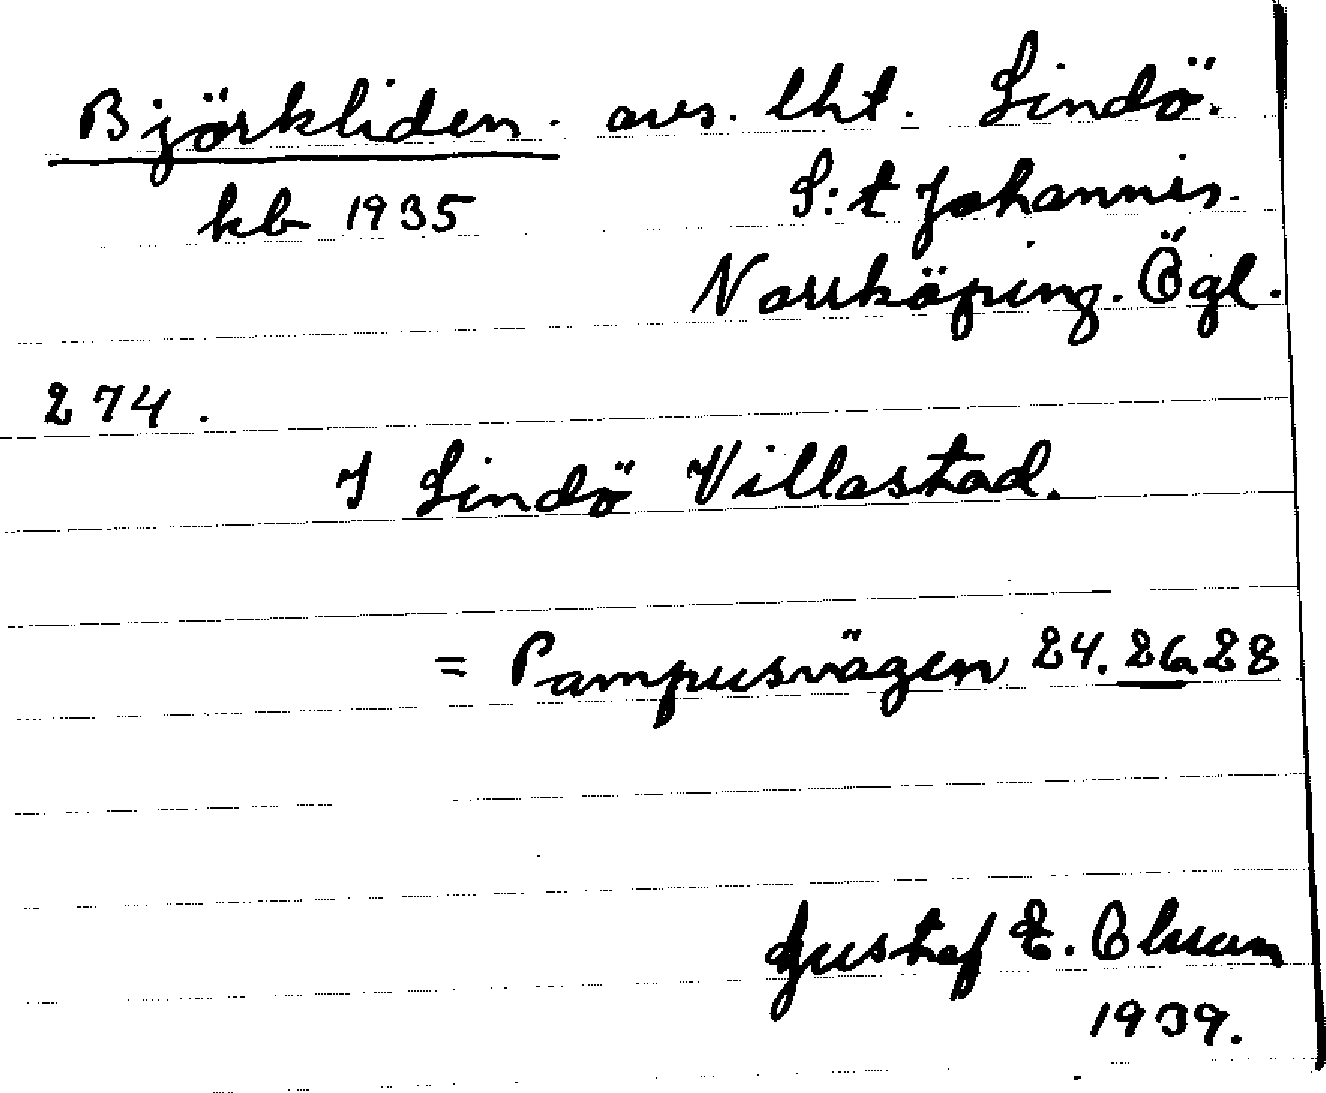 Björkliden. avs. lht. Lindö.
kb 1935 S:t Johannis.
Norrköping. Ögl.
274.
I Lindö Villastad.
= Pampusvägen 24. 26. 28
Gustef E. Olsson
1939.